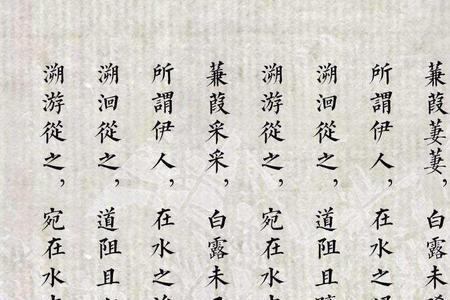 蒹葭萋萋，白露未
所謂伊人，在水之
溯洄從之，道阻且
溯游從之，宛在水
蒹葭采采，白露未
所謂伊人，在水之
溯洄從之，道阻且
溯游從之，宛在水